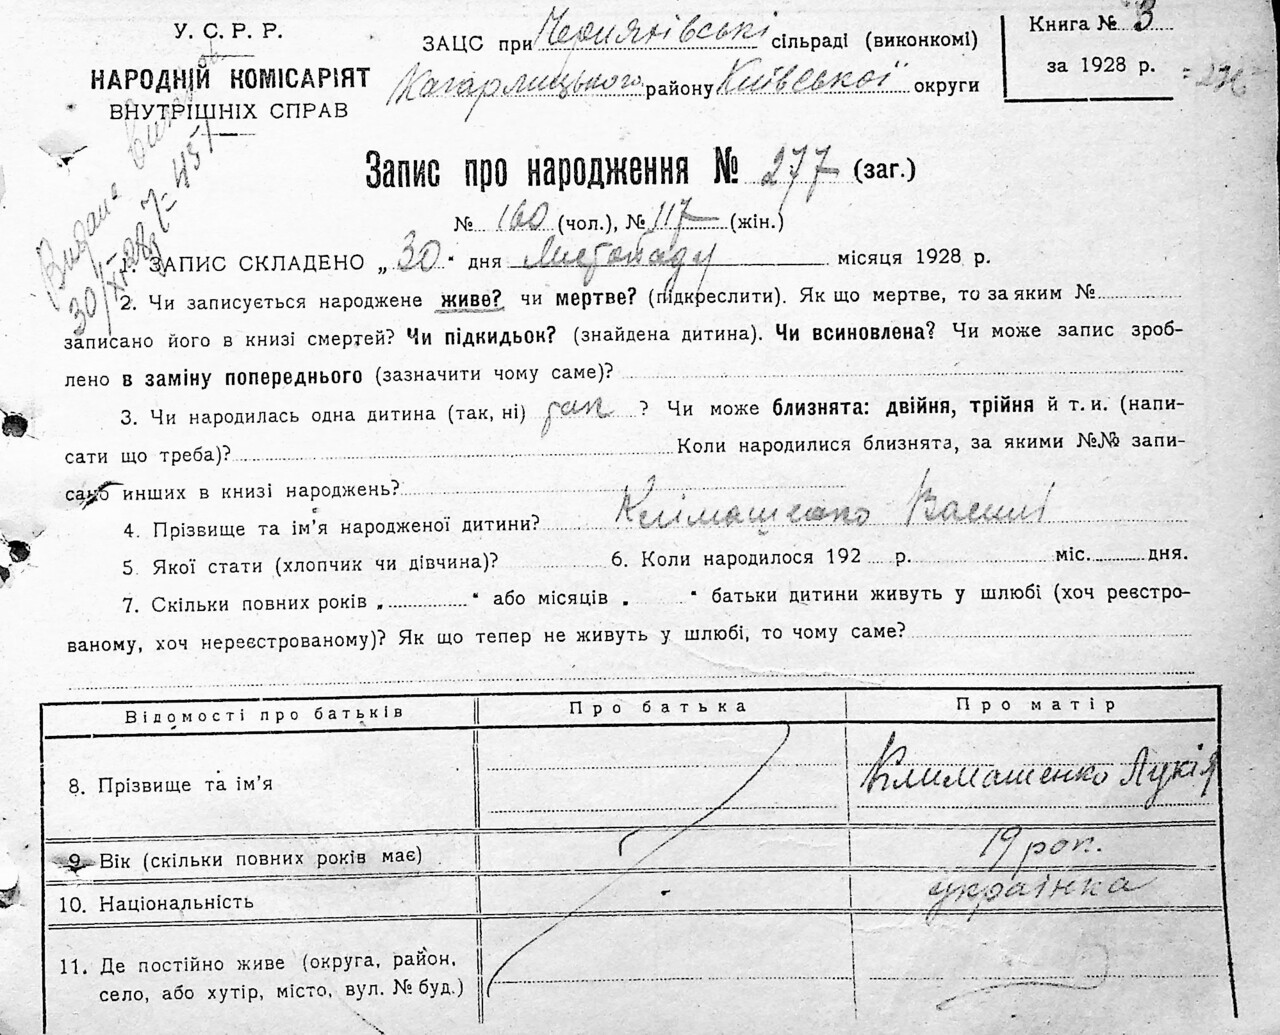 У. С. Р. Р.
НАРОДНІЙ КОМІСАРІЯТ
ВНУТРІШНІХ СПРАВ
ЗАЦС при Черняхівські сільраді (виконкомі)
Кагарлицького району Київської округи
Книга № 3
за 1928 р.
Видана
30/XI-28
Запис про народження № 277 (заг.)
№ 160 (чол.), № 117 (жін.)
1. ЗАПИС СКЛАДЕНО „30" дня Листопаду місяця 1928 р.
2. Чи записується народжене живе? чи мертве? (підкреслити). Як що мертве, то за яким №
записано його в книзі смертей? Чи підкидьок? (знайдена дитина). Чи всиновлена? Чи може запис зроб-
лено в заміну попереднього (зазначити чому саме)?
3. Чи народилась одна дитина (так, ні) так ? Чи може близнята: двійня, трійня й т. и. (напи-
сати що треба)? Коли народилися близнята, за якими №№ запи-
сано инших в книзі народжень?
4. Прізвище та ім'я народженої дитини? Клімашенко Василь
5. Якої стати (хлопчик чи дівчина)? 6. Коли народилося 192 р. міс. дня.
7. Скільки повних років „ " або місяців „ " батьки дитини живуть у шлюбі (хоч реєстро-
ваному, хоч нереєстрованому)? Як що тепер не живуть у шлюбі, то чому саме?
Відомості про батьків Про батька Про матір
8. Прізвище та ім'я Климашенко Лукія
9. Вік (скільки повних років має) 19 рок.
10. Національність українка
11. Де постійно живе (округа, район,
село, або хутір, місто, вул. № буд.)